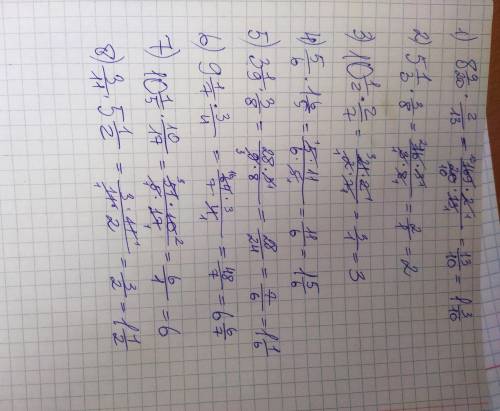 1) 8 9/20 · 2/13 = 169 · 2 / 20 · 13 = 13/10 = 1 3/10
2) 5 1/3 · 3/8 = 16 · 3 / 3 · 8 = 2/1 = 2
3) 10 1/2 · 2/7 = 21 · 2 / 2 · 7 = 3/1 = 3
4) 5/6 · = 5 · 11 / 6 · 5 = 11/6 = 1 5/6
5) 3 1/9 · 3/8 = 28 · 3 / 9 · 8 = /24 = 7/6 = 1 1/6
6) 9 1/7 · 3/4 = 64 · 3 / 7 · 4 = 48/7 = 6 6/7
7) 10 1/5 · 10/17 = 51 · 10 / 5 · 17 = 6/1 = 6
8) 3/11 · 5 1/2 = 3 · 11 / 11 · 2 = 3/2 = 1 1/2